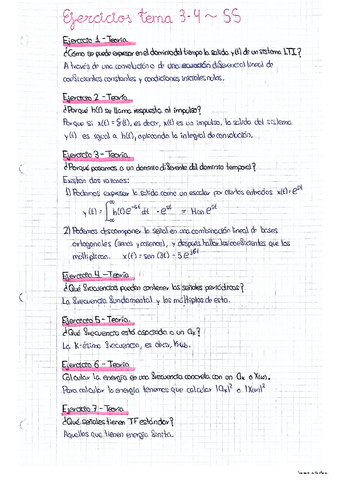 Ejercicios tema 3-4 ~ SS
Ejercicio 1 - Teoría
¿Cómo se puede expresar en el dominio del tiempo la salida y(t) de un sistema LTI?
A través de una convolución o de una ecuación diferencial lineal de
coeficientes constantes y condiciones iniciales nulas.
Ejercicio 2 - Teoría
¿Porqué h(t) se llama respuesta al impulso?
Porque si x(t) = δ(t), es decir, x(t) es un impulso, la salida del sistema
y(t) es igual a h(t), aplicando la integral de convolución.
Ejercicio 3 - Teoría
¿Porqué pasamos a un dominio diferente del dominio temporal?
Existen dos razones:
1) Podemos expresar la salida como un escalar por ciertas entradas x(t) = e^st
y(t) = ∫ h(t) e^-st dt · e^st = H(s) e^st
2) Podemos descomponer la señal en una combinación lineal de bases
ortogonales (senos y cosenos), y después hallar los coeficientes que las
multiplican. x(t) = sen(3t) - 5e^j6t
Ejercicio 4 - Teoría
¿Qué frecuencias pueden contener las señales periódicas?
La frecuencia fundamental y los múltiplos de esta.
Ejercicio 5 - Teoría
¿Qué frecuencia está asociada a un ak?
La k-ésima frecuencia, es decir, kω0.
Ejercicio 6 - Teoría
Calcular la energía en una frecuencia concreta con un ak o X(ω).
Para calcular la energía tenemos que calcular |ak|² o |X(ω)|²
Ejercicio 7 - Teoría
¿Qué señales tienen TF estándar?
Aquellas que tienen energía finita.